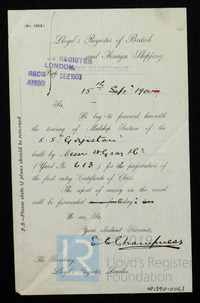 Lloyd's Register of British
and Foreign Shipping
REGISTER
LONDON.
SEP 1900
15th Sept 190
Sir,
We beg to forward herewith
the tracing of Midship Section of the
S.S.
built by Messrs W. Gray & Co
(Yard No. 613) for the preparation of
the first entry Certificate of Class.
The report of survey on the vessel
will be forwarded
We are, Sir,
Your obedient Servants,
E. C. Champness
The Secretary
Lloyd's Register, London.
P.S.—Please state if plans should be returned.
Lloyd's Register
Foundation